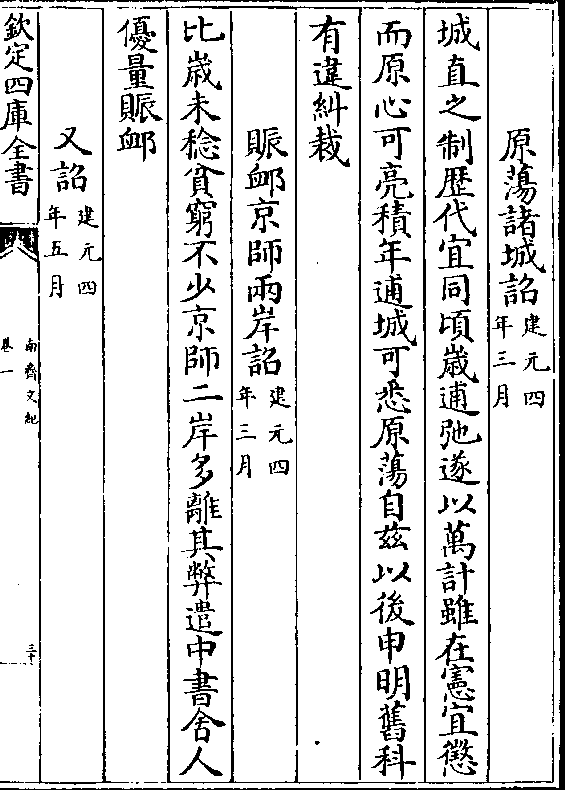 原蕩諸城詔建元四年三月
城直之制歴代宜同頃歳逋弛遂以萬計雖在憲宜懲
而原心可亮積年逋城可悉原蕩自兹以後申明舊科
有違糾裁
賑䘏京師兩岸詔建元四年三月
比歳未稔貧窮不少京師二岸多離其弊遣中書舍人
優量賑䘏
又詔建元四年五月
欽定四庫全書
南齊文紀
卷一
三十